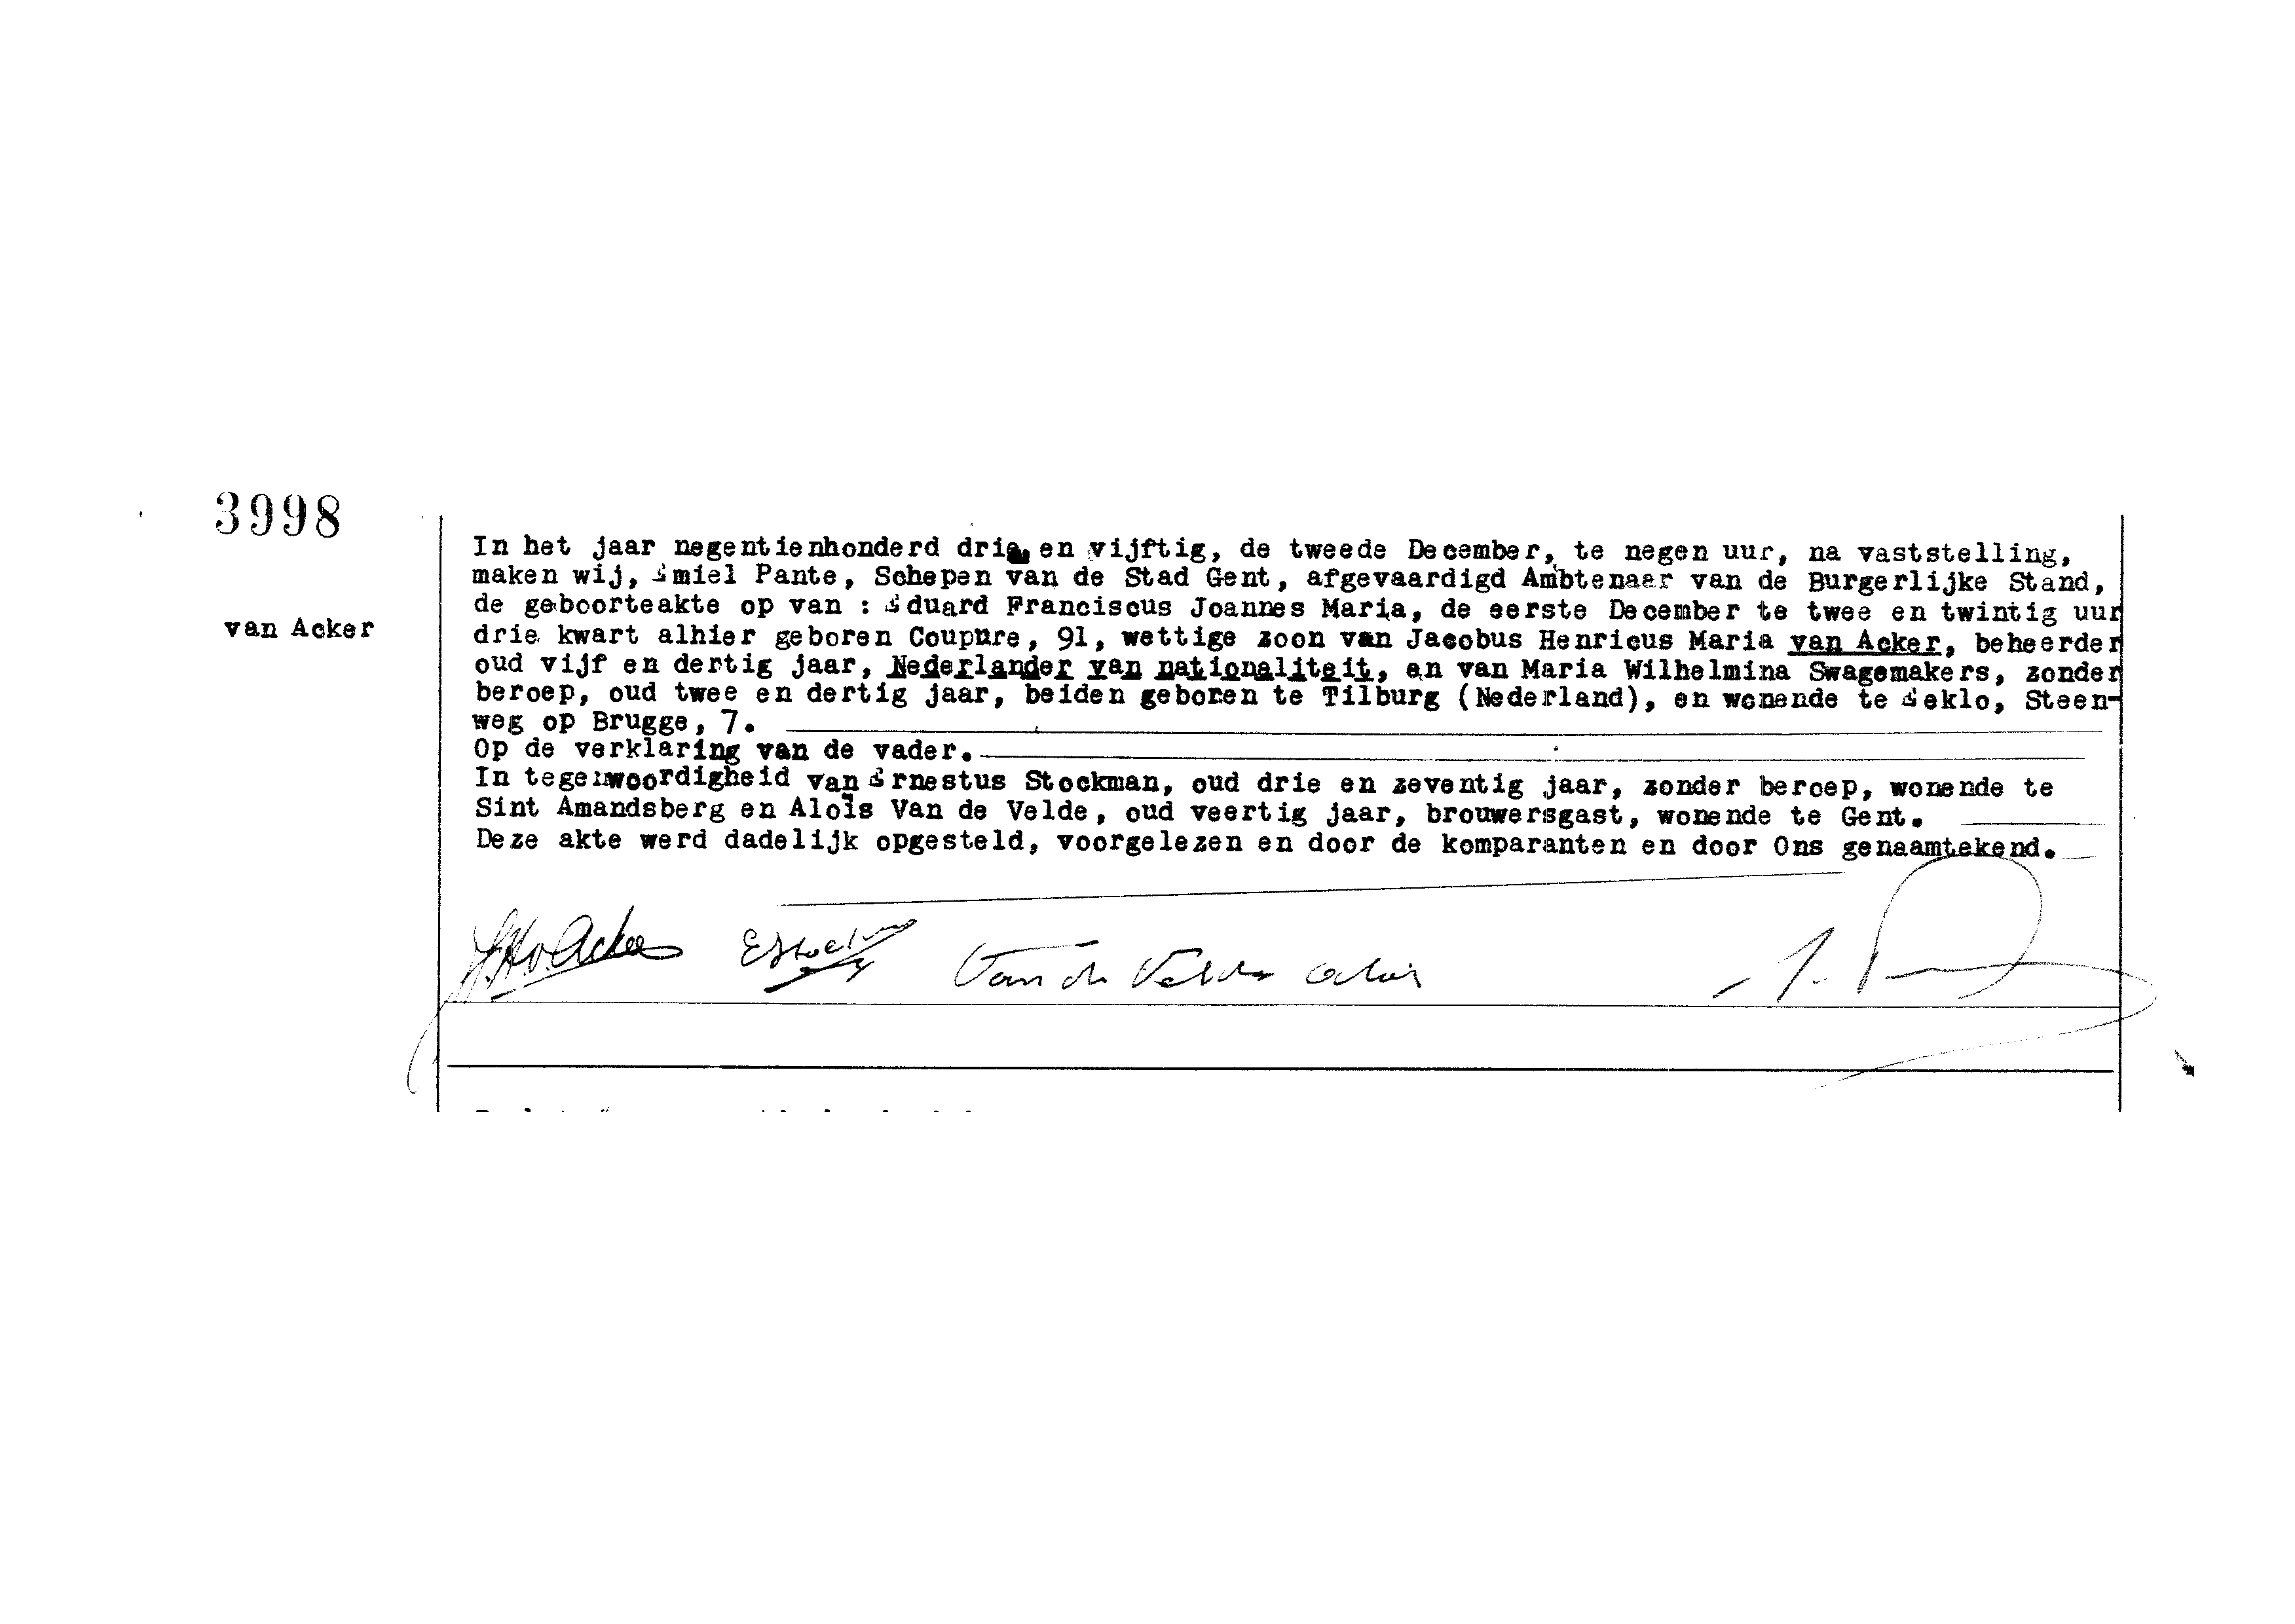 3998
van Acker
In het jaar negentienhonderd drie en vijftig, de tweede December, te negen uur, na vaststelling,
maken wij, Emiel Pante, Schepen van de Stad Gent, afgevaardigd Ambtenaar van de Burgerlijke Stand,
de geboorteakte op van : Eduard Franciscus Joannes Maria, de eerste December te twee en twintig uur
drie kwart alhier geboren Coupure, 91, wettige zoon van Jacobus Henricus Maria van Acker, beheerder
oud vijf en dertig jaar, Nederlander van nationaliteit, en van Maria Wilhelmina Swagemakers, zonder
beroep, oud twee en dertig jaar, beiden geboren te Tilburg (Nederland), en wonende te Eeklo, Steen-
weg op Brugge, 7.
Op de verklaring van de vader.
In tegenwoordigheid van Ernestus Stockman, oud drie en zeventig jaar, zonder beroep, wonende te
Sint Amandsberg en Aloïs Van de Velde, oud veertig jaar, brouwersgast, wonende te Gent.
Deze akte werd dadelijk opgesteld, voorgelezen en door de komparanten en door Ons genaamtekend.
J.H.v.Acker EStockman Van de Velde Alois